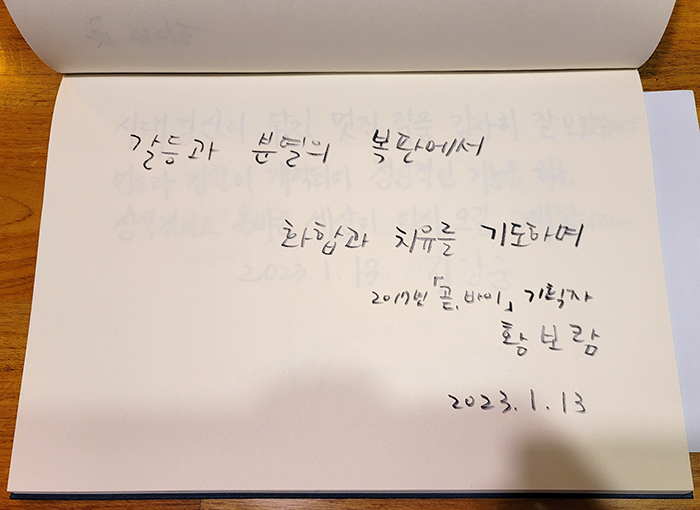 갈등과 분열의 복판에서
화합과 치유를 기도하며
2017년 「곧, 바이」 기획자
황보람
2023. 1. 13